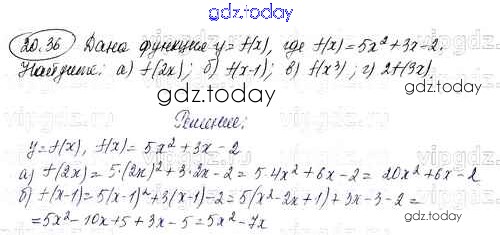 gdz.today
20.36 Дана функция y = f(x), где f(x) = 5x² + 3x - 2.
Найдите: а) f(2x); б) f(x-1); в) f(x³); г) 2f(3x).
gdz.today
Решение:
y = f(x), f(x) = 5x² + 3x - 2
а) f(2x) = 5·(2x)² + 3·2x - 2 = 5·4x² + 6x - 2 = 20x² + 6x - 2
б) f(x-1) = 5(x-1)² + 3(x-1) - 2 = 5(x² - 2x + 1) + 3x - 3 - 2 =
= 5x² - 10x + 5 + 3x - 5 = 5x² - 7x
gdz.today